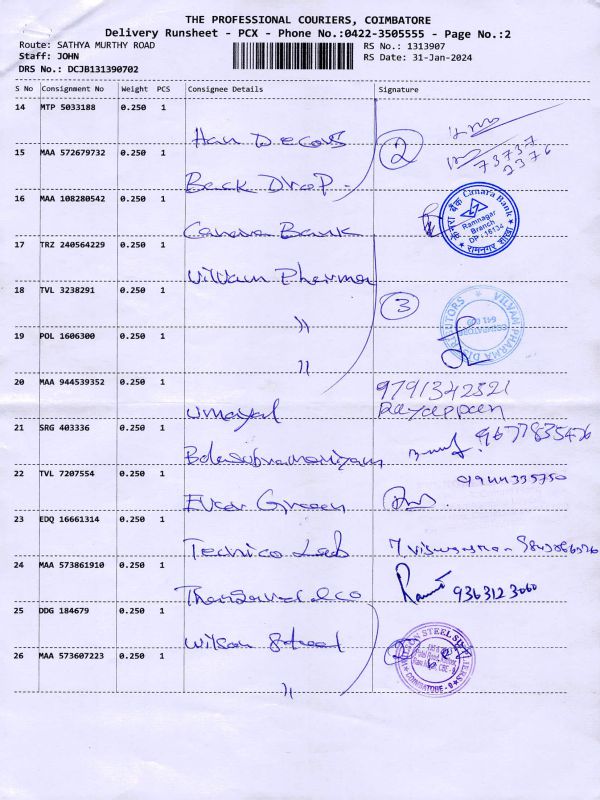 THE PROFESSIONAL COURIERS, COIMBATORE
Delivery Runsheet - PCX - Phone No.:0422-3505555 - Page No.:2
Route: SATHYA MURTHY ROAD
RS No.: 1313907
Staff: JOHN
RS Date: 31-Jan-2024
DRS No.: DCJB131390702
S No Consignment No Weight PCS Consignee Details Signature
14 MTP 5033188 0.250 1
Hari Decors
2
73737
2376
15 MAA 572679732 0.250 1
Back Drop
16 MAA 108280542 0.250 1
Canara Bank
केनरा बैंक Canara Bank
Ramnagar
Branch
DP - 16134
रामनगर शाखा
17 TRZ 240564229 0.250 1
Vilvam Pharma
18 TVL 3238291 0.250 1
"
3
VILVAN PHARMA DISTRIBUTORS
COIMBATORE
641 009
19 POL 1606300 0.250 1
"
20 MAA 944539352 0.250 1
Umayal
9791342321
Rayappan
21 SRG 403336 0.250 1
Balasubramaniyam
9677835476
22 TVL 7207554 0.250 1
Ever Green
9944335750
23 EDQ 16661314 0.250 1
Tecnico Lab
24 MAA 573861910 0.250 1
9363123060
25 DDG 184679 0.250 1
Wilson Steel
26 MAA 573607223 0.250 1
"
2
WILSON STEEL SUPPLIERS
COIMBATORE - 9